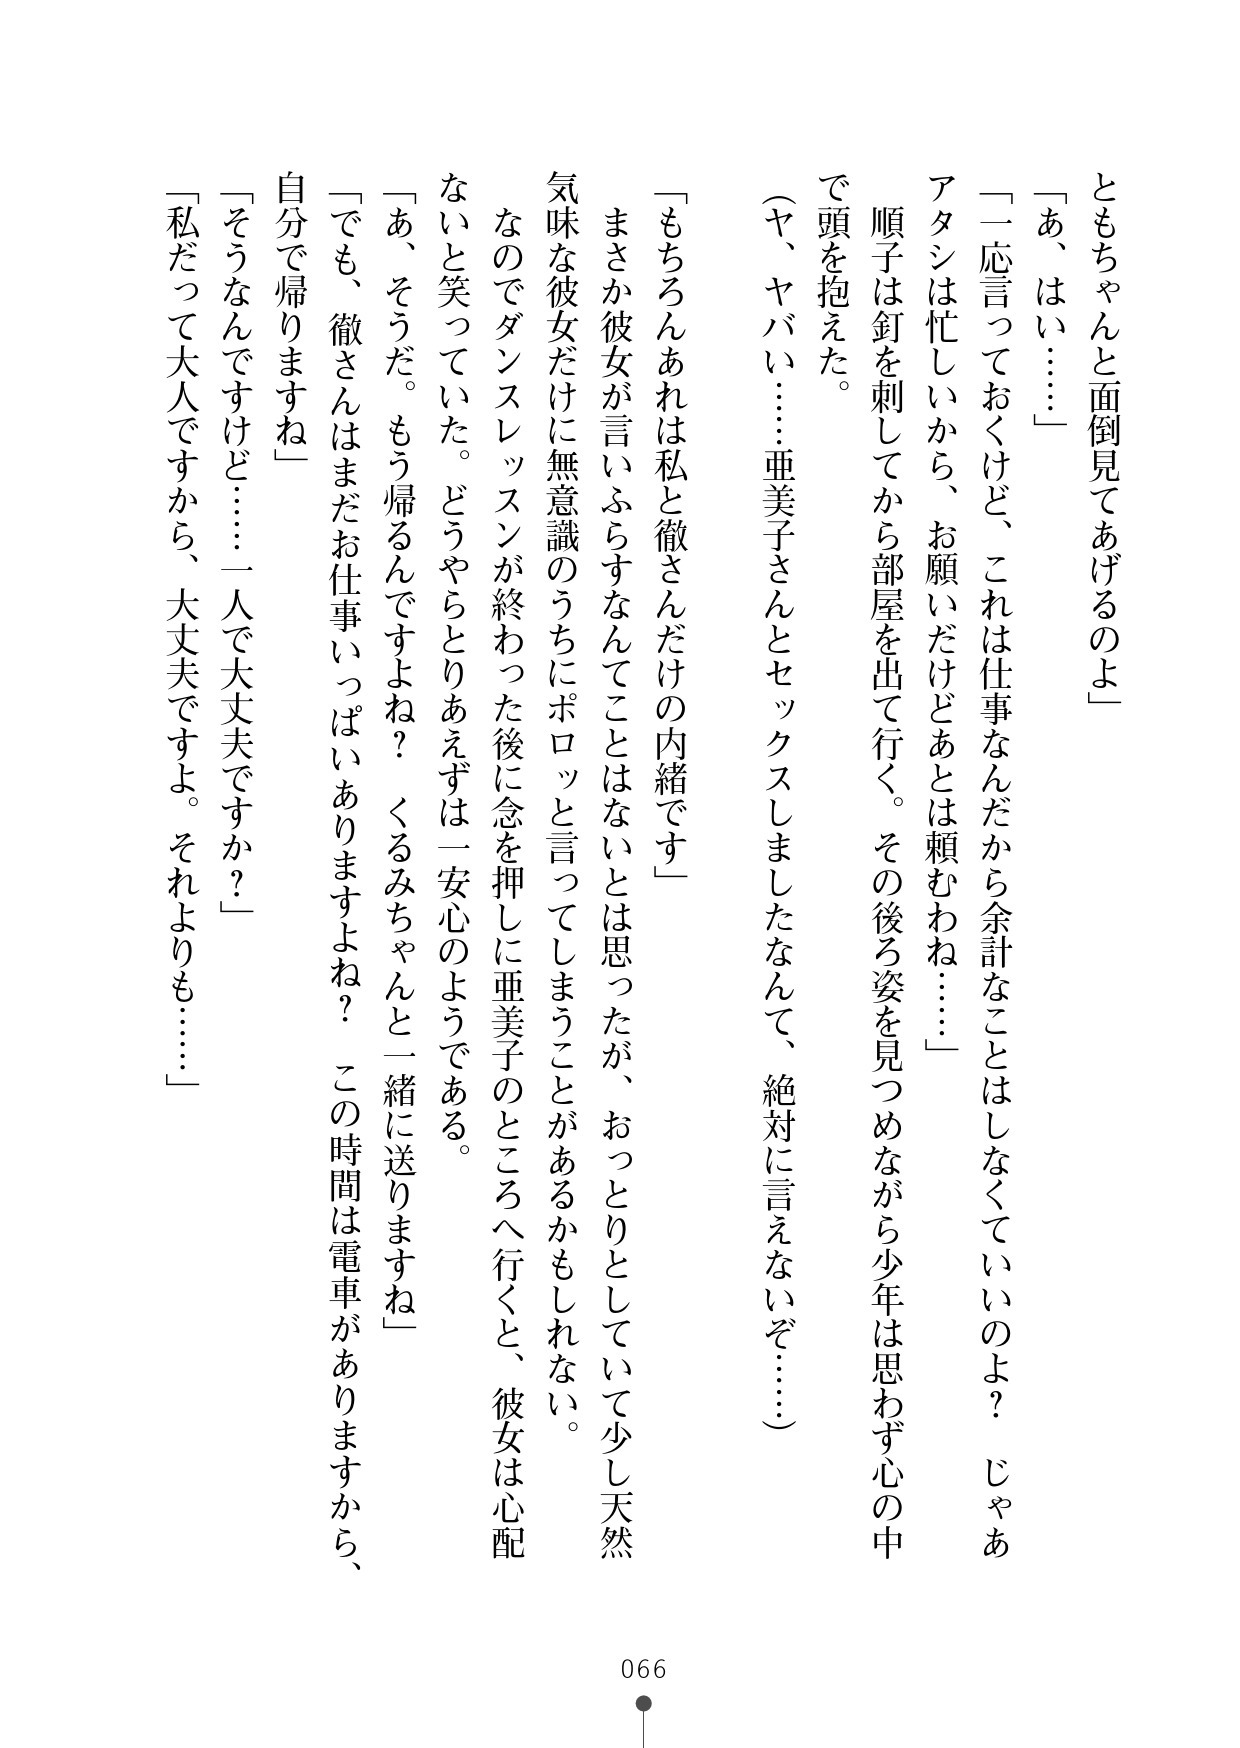 ともちゃんと面倒見てあげるのよ」
「あ、はい……」
「一応言っておくけど、これは仕事なんだから余計なことはしなくていいのよ？　じゃあ
アタシは忙しいから、お願いだけどあとは頼むわね……」
　順子は釘を刺してから部屋を出て行く。その後ろ姿を見つめながら少年は思わず心の中
で頭を抱えた。
（ヤ、ヤバい……亜美子さんとセックスしましたなんて、絶対に言えないぞ……）
「もちろんあれは私と徹さんだけの内緒です」
　まさか彼女が言いふらすなんてことはないとは思ったが、おっとりとしていて少し天然
気味な彼女だけに無意識のうちにポロッと言ってしまうことがあるかもしれない。
　なのでダンスレッスンが終わった後に念を押しに亜美子のところへ行くと、彼女は心配
ないと笑っていた。どうやらとりあえずは一安心のようである。
「あ、そうだ。もう帰るんですよね？　くるみちゃんと一緒に送りますね」
「でも、徹さんはまだお仕事いっぱいありますよね？　この時間は電車がありますから、
自分で帰りますね」
「そうなんですけど……一人で大丈夫ですか？」
「私だって大人ですから、大丈夫ですよ。それよりも……」
066